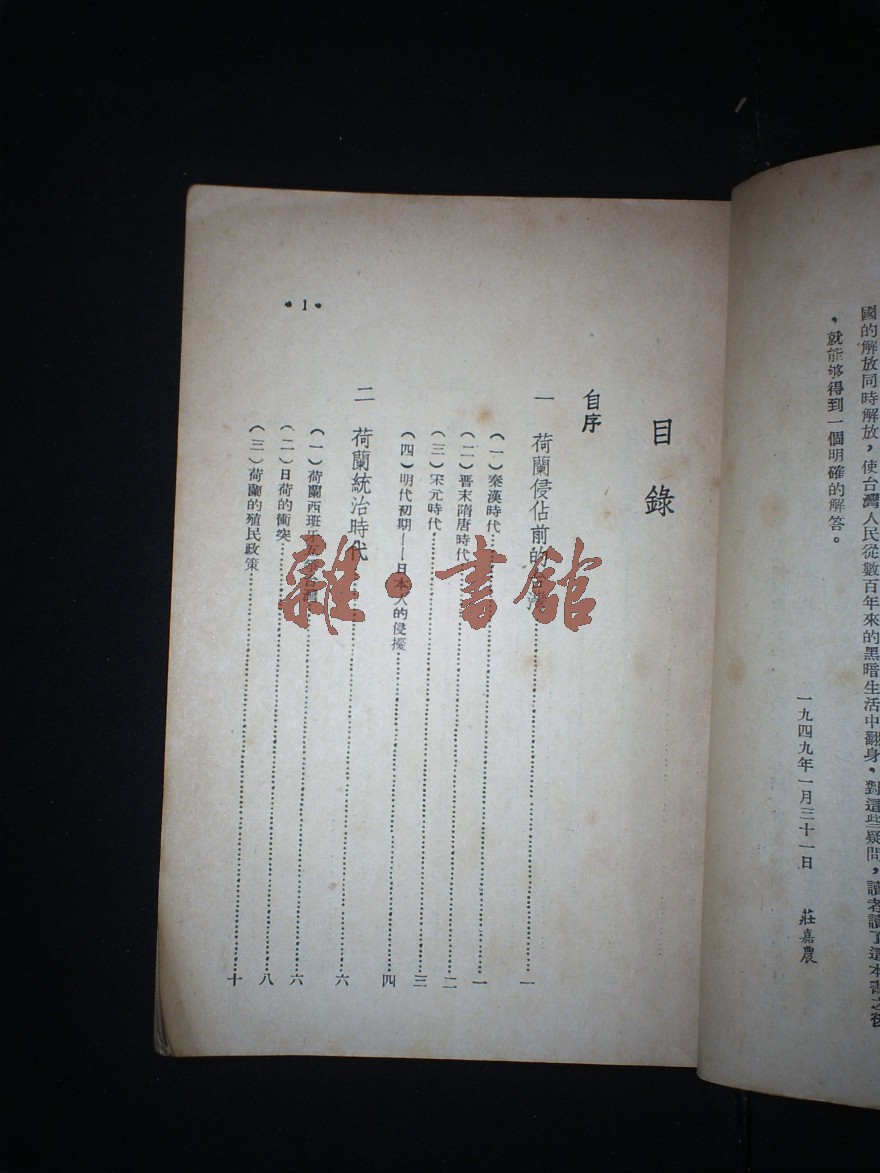 國的解放同時解放，使台灣人民從數百年來的黑暗生活中翻身，對這些疑問，讀者讀了這本書之後
，就能够得到一個明確的解答。
一九四九年一月三十一日 莊嘉農
目錄
自序
一 荷蘭侵佔前的台灣 一
（一）秦漢時代 一
（二）晋末隋唐時代 二
（三）宋元時代 三
（四）明代初期——日本人的侵擾 四
二 荷蘭統治時代 六
（一）荷蘭西班牙 六
（二）日荷的衝突 八
（三）荷蘭的殖民政策 十
•1•
雜·書館